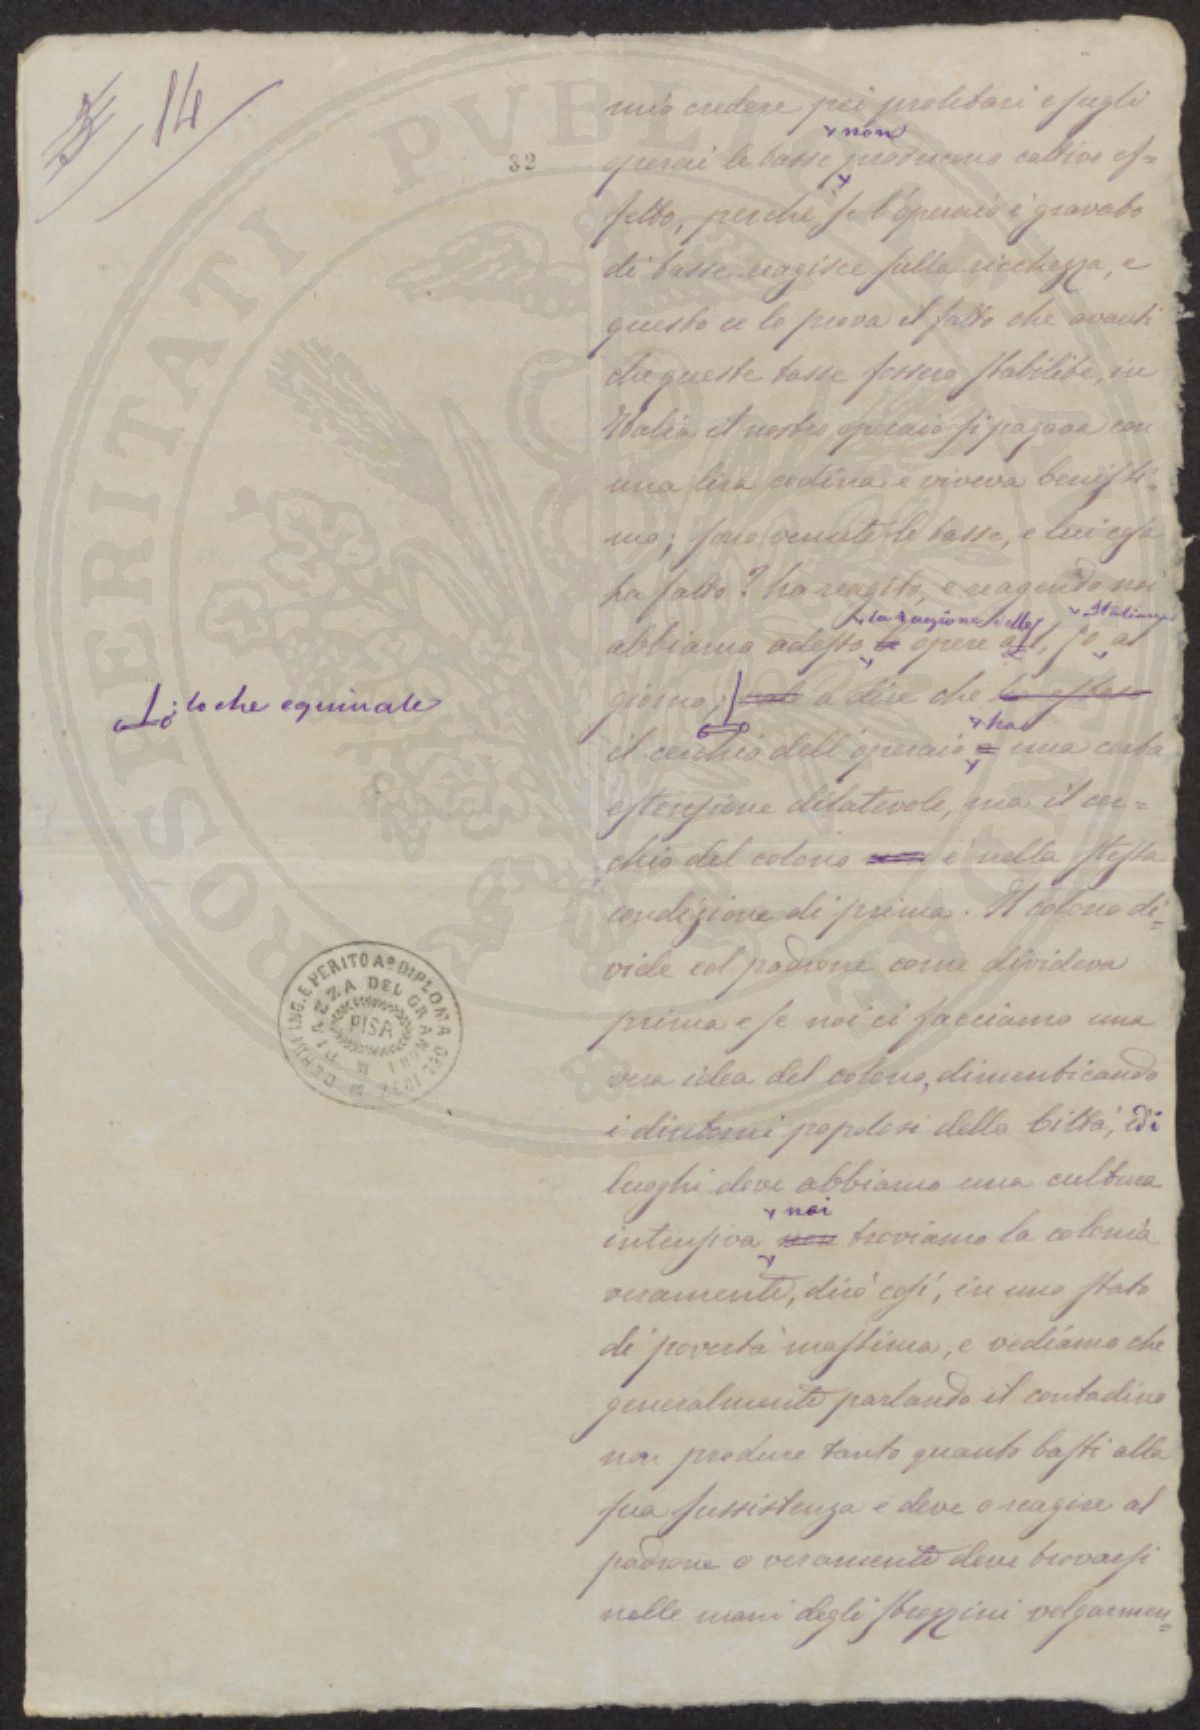 14
32
mio credere pei proletari e sugli
non
operai le tasse producono cattivo ef=
fetto, perché se l'operaio è gravato
di tasse reagisce sulla ricchezza, e
questo ce lo prova il fatto che avanti
che queste tasse fossero stabilite, in
Italia il nostro operaio si pagava con
una lira codina e viveva benissi=
mo; sono venute le tasse, e lui cosa
ha fatto? ha reagito, e reagendo noi
la ragione delle
abbiamo adesso opere al
giorno, a dire che
; lo che equivale
ha
il cerchio dell'operaio una certa
estensione dilatevole, ma il cer=
chio del colono è nella stessa
condizione di prima. Il colono di=
vide col padrone come divideva
prima e se noi ci facciamo una
vera idea del colono, dimenticando
i dintorni popolosi della Città, e di
luoghi dove abbiamo una cultura
noi
intensiva non troviamo la colonia
veramente, dirò così, in uno stato
di povertà massima, e vediamo che
generalmente parlando il contadino
non produce tanto quanto basti alla
sua sussistenza e deve o reagire al
padrone o veramente deve trovarsi
nelle mani degli strozzini volgarmen=
ING. E PERITO A° DIPLOMA DEL
PIAZZA DEL GRANO
PISA
PROSPERITATI PVBLICAE